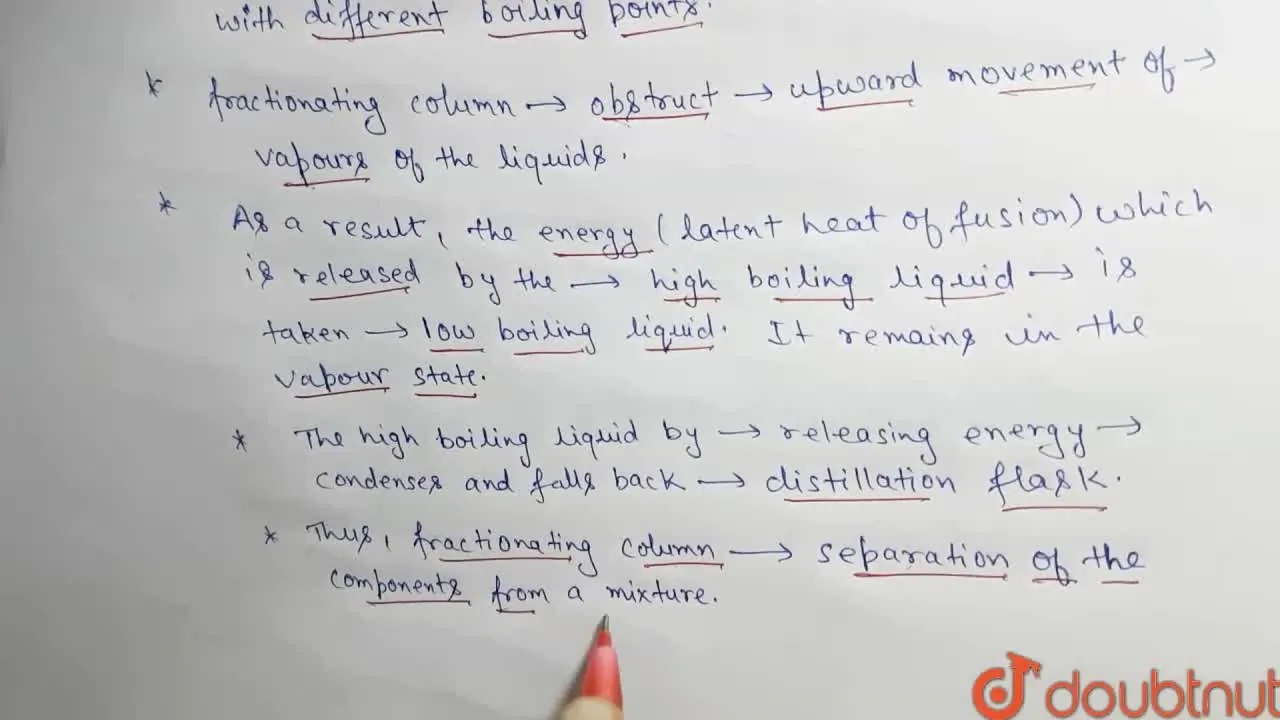 with different boiling points.
* fractionating column → obstruct → upward movement of →
vapours of the liquids.
* As a result, the energy (latent heat of fusion) which
is released by the → high boiling liquid → is
taken → low boiling liquid. It remains in the
vapour state.
* The high boiling liquid by → releasing energy →
condenses and falls back → distillation flask.
* Thus, fractionating column → separation of the
components from a mixture.
doubtnut